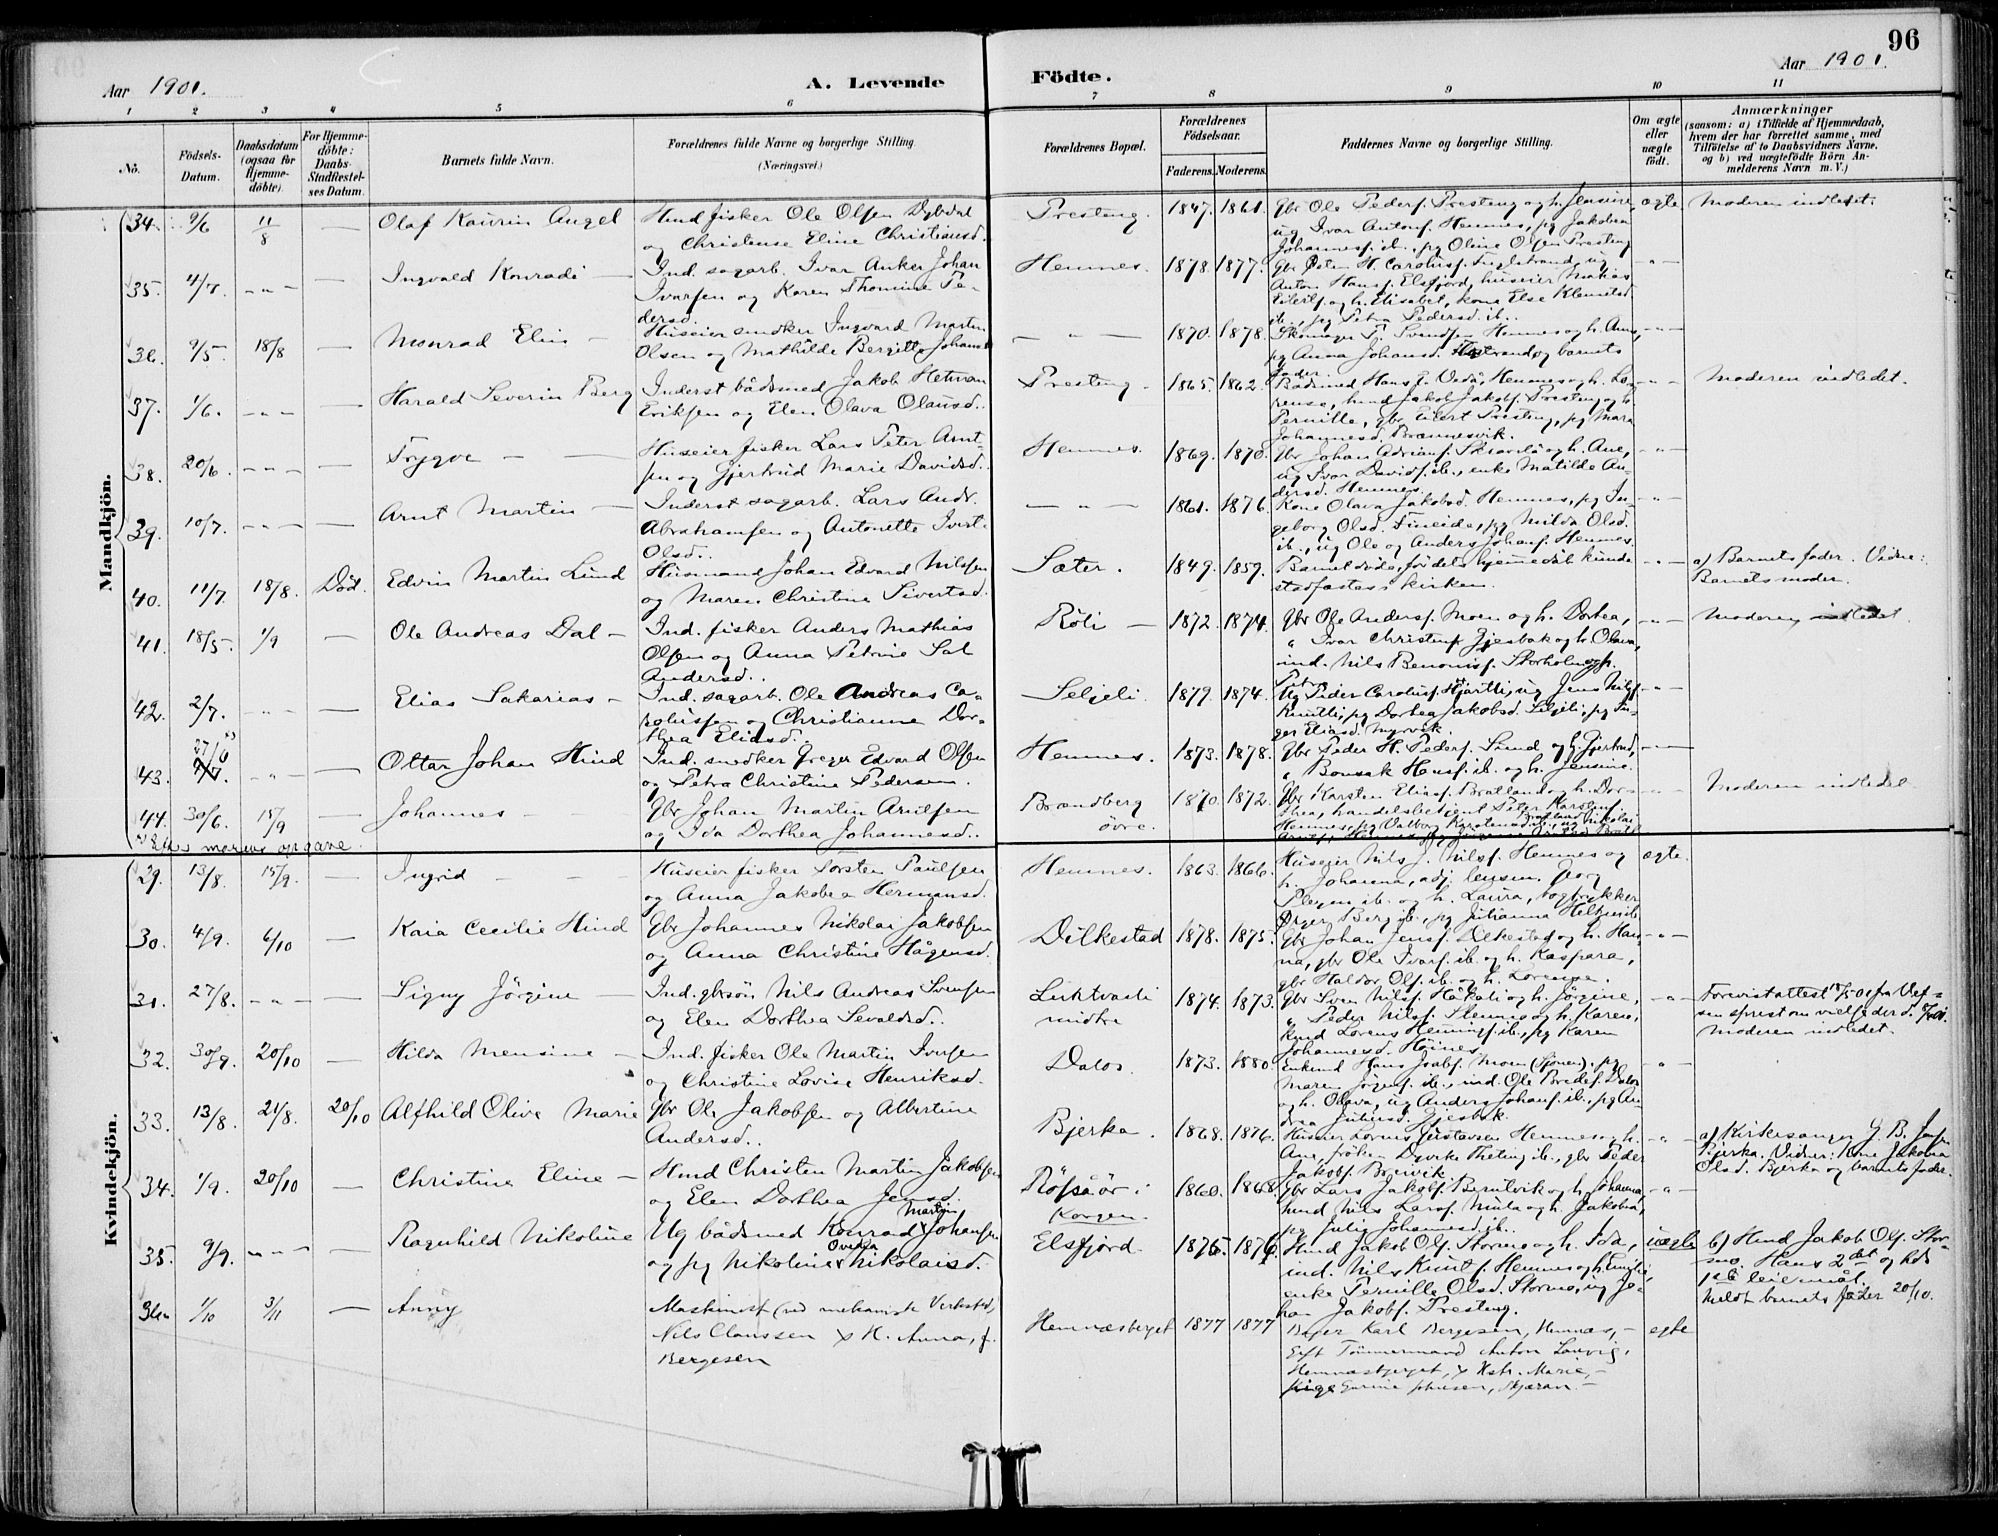 96
Aar 1901.
A. Levende
Födte.
Aar 1901.
1 2 3 4 5 6 7 8 9 10 11
No.
Födsels-
Datum.
Daabsdatum
(ogsaa for
Hjemme-
döbte).
For Hjemme-
döbte:
Daabs-
Stadfæstel-
ses Datum.
Barnets fulde Navn.
Forældrenes fulde Navne og borgerlige Stilling.
(Næringsvei.)
Forældrenes Bopæl.
Forældrenes
Födselsaar.
Faderens. Moderens.
Faddernes Navne og borgerlige Stilling.
Om ægte
eller
uægte
födt.
Anmærkninger
(saasom: a) i Tilfælde af Hjemmedaab,
hvem der har forrettet samme, med
Tilföielse af to Daabsvidners Navne,
og b) ved uægtefödte Börn An-
melderens Navn m. V.)
Mandkjön.
34. 9/6 11/8 — Olaf Kaurin Angel
Hmd fisker Ole Olsen Dybdal
og Christense Eline Christiansd.
Presteng. 1847. 1861.
Gbr Ole Peders. Presteng og h. Jensine
ug Ivar Antons. Hemnes, pg Jakobea
Johanness. ib., pg Oline Olsen Presteng
ægte Moderen indledet.
35. 4/7. -"- — Ingvald Konradi —
Ind. sagarb. Ivar Anker Johan
Ivarsen og Karen Thomine Pe-
dersd.
Hemnes. 1878. 1877.
Anton Hans. Elsfjord, huseier Matias
Eilerts. og h. Elisabet, kone Else Klemetsd.
ib., pg Petra Pedersd. ib..
-"-
36. 9/5. 18/8 — Monrad Elin —
Huseier snedker Ingvard Martin
Olsen og Mathilde Bergitte Johansd.
— " — 1870. 1878.
Skomager P. Svendsen Hemnes og h. Anna,
pg Anna Johansd. og barnets
fader.
-"-
37. 1/6. -"- — Harald Severin Berg
Inderst bådsmed Jakob Herman
Eriksen og Elen Olava Olausd..
Presteng. 1865. 1862.
Bådsmed Hans P. Hemnes og h. Lo-
rense, hmd Jakob Jakobs. Presteng og h.
Pernille, gbr Eilert Presteng, pg Mara
Johannesd. Brennesvik.
-"- Moderen indledet.
38. 20/6. -"- — Trygve —
Huseier fisker Lars Peter Arnt-
sen og Gjertrud Marie Davidsd..
Hemnes. 1869. 1870.
Gbr Johan Adrians. Skravlå og h. Ane,
ug Ivar Davids. ib., enke Matilde An-
dersd. Hemnes.
-"-
39. 10/7. -"- — Arnt Martin —
Inderst sagarb. Lars Andr.
Abrahamsen og Antonette Ivert.
Olsd..
— " — 1861. 1876.
Kone Olava Jakobsd. Hemnes, pg In-
geborg Olsd. Fineide, pg Milda Olsd.
ib., ug Ole og Anders Johans. Hemnes.
-"-
40. 11/7. 18/8. Död. Edvin Martin Lund
Husmand Johan Edvard Nilsen
og Maren Christine Sivertsd.
Sæter. 1849. 1859.
Barnet döde, för dets hjemmedåb kunde
stadfæstes i kirken.
-"- a) Barnets fader. Vidne:
Barnets moder.
41. 18/5. 1/9 — Ole Andreas Dal —
Ind. fisker Anders Mathias
Olsen og Anna Petrine Dal
Andersd..
Röli — 1872. 1874.
Gbr Ole Anders. Moen og h. Dorthea,
" Ivar Christens. Gjesbak og h. Olava,
ind. Nils Benonis. Storholmen
-"- Moderen indledet.
42. 2/7. -"- — Elias Sakarias —
Ind. sagarb. Ole Andreas Ca-
rolussen og Christianne Dor-
thea Eliasd.
Seljeli. 1879. 1874.
Ug Peder Carolus. Hjartli, ug Jens Nils.
Knutli, pg Dorthea Jakobsd. Seljeli, pg In-
ger Eliasd. Myrvik.
-"-
43. 27/6 -"- — Ottar Johan Hind
Ind. snedker Greger Edvard Olsen
og Petra Christine Pedersen.
Hemnes. 1873. 1878.
Gbr Peder H. Peders. Sund og h. Gjertrud,
" Bonsak Hans. ib. og h. Jensine.
-"-
44. 30/6. 15/9 — Johannes —
Gbr Johan Martin Arntsen
og Ida Dorthea Johannesd..
Brendberg
övre. 1870. 1872.
Gbr Karsten Elias. Bratland og h. Dor-
thea, handelsbetjent Peter Karstens.
Hemnes, pg Valborg Karstensd. ib., ug Nikolai
-"- Moderen indledet
Efter morens opgave.
Kvindekjön.
29. 13/8. 15/9. — Ingrid —
Huseier fisker Torsten Paulsen
og Anna Jakobea Hermansd.
Hemnes. 1863. 1866.
Huseier Nils J. Nils. Hemnes og
h. Johanna, adj. lensm. Georg
Pleym ib. og h. Laura, bogtrykker
Berg ib., pg Julianna
ægte.
30. 4/9. 6/10 — Kaia Cecilie Hind
Gbr Johannes Nikolai Jakobsen
og Anna Christine Hågensd.
Dilkestad 1878. 1875.
Gbr Johan Jens. Dilkestad og h. Han-
na, gbr Ole Ivars. ib. og h. Kaspara,
gbr Haldor Ols. ib. og h. Lorense.
-"-
31. 27/8. -"- — Signy Jörgine
Ind. gbrsön Nils Andreas Svensen
og Elen Dorthea Sevaldsd..
Luktvasli
midtre 1874. 1873.
Gbr Sven Nils. Håkali og h. Jörgine,
" Peder Nils. Stemes og h. Karen,
hmd Lorens Hennings. ib., pg Karen
Johannesd. Höines.
-"- Forevist attest fra Vef-
sen sprest om vielse der d.
Moderen indledet.
32. 30/9. 20/10 — Hilda Mensine —
Ind. fisker Ole Martin Iversen
og Christine Lovise Henriksd.
Dalos. 1873. 1880.
Enkemd Hans Joabs. Moen (Sjonen), pg
Maren Jörgens. ib., ind. Ole Bredes. Dalos
og h. Olava, ug Anders Johans. ib., pg An-
drea Juliusd. Gjesbak.
-"-
33. 13/8. 21/8. 20/10 Alfhild Olive Marie
Gbr Ole Jakobsen og Albertine
Andersd..
Bjerka. 1868. 1876.
Huseier Lorens Gustavsen Hemnes og h.
Ane, fröken Dyveke Theting ib., gbr Peder
Jakobs. Breivik.
-"- a) Kirkesanger J. B. Jensen
Bjerka. Vidner: Kone Jakobina
Olsd. Bjerka og barnets fader.
34. 1/9. 20/10 — Christine Eline —
Hmd Christen Martin Jakobsen
og Elen Dorthea Jensd.
Röfsåör i
Korgen. 1860. 1868.
Gbr Lars Jakobs. Bentvik og h. Johanna,
hmd Nils Lars. Mula og h. Jakobea,
pg Julie Johannesd. ib.
-"-
35. 9/9. -"- — Ragnhild Nikoline
Ug bådsmed Konrad Martin Johansen
og pg Nikoline Ovedia Nikolaisd.
Elsfjord. 1875. 1876.
Hmd Jakob Ols. Stormo og h. Ida,
ind. Nils Knuts. Hemnes og h. Emilie,
enke Pernille Olsd. Stormo, ug Jo-
han Jakobs. Presteng.
uægte b) Hmd Jakob Ols. Stor-
mo. Hans 2det og hds
1ste leiermål.
Meldt barnets fader 20/10.
36. 1/10 3/11 — Anny
Maskinist (ved mekanisk Verksted)
Nils Claussen & H. Anna, f.
Bergesen
Hemnæsberget 1877 1877
Bager Karl Bergesen, Hemnæs, —
Gift Tömmermand Anton Lauvig,
Hemnæsberget, & Hstr. Marie, —
Pige
egte